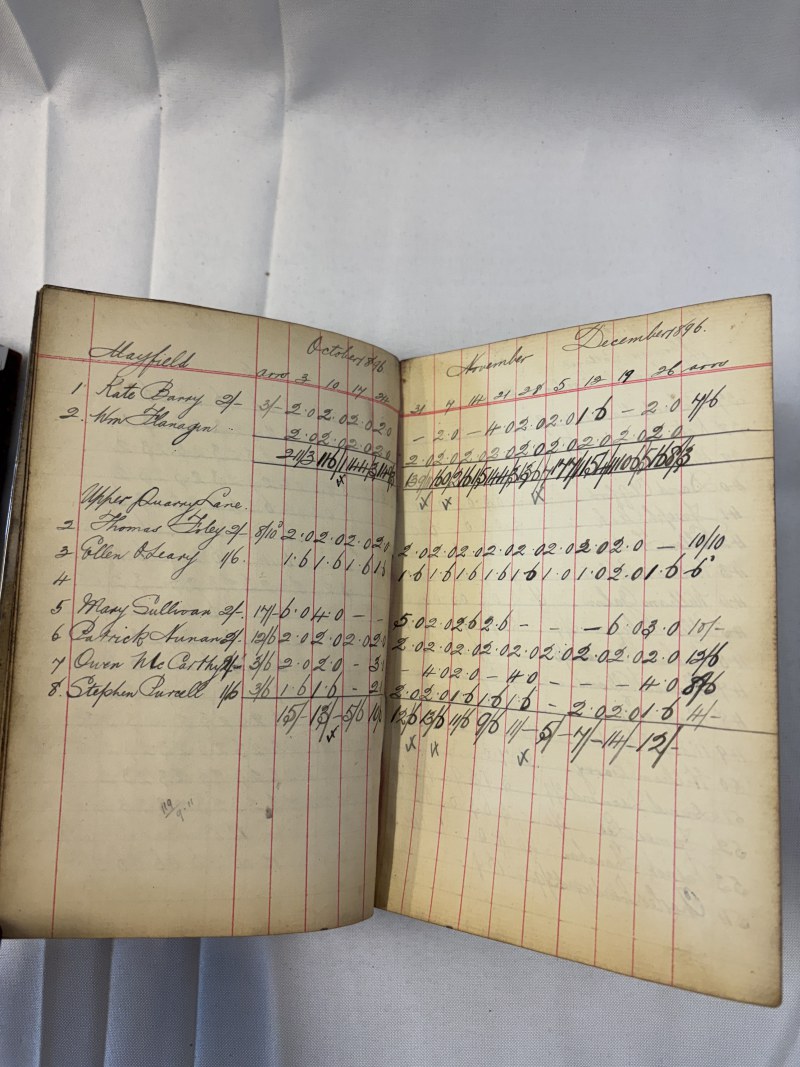 October 1896
Mayfield
arrs 3 10 17 24
1 Kate Barry 2/- 3/- 2.0 2.0 2.0 2.0
2. Wm Flanagin 2.0 2.0 2.0 2.0
Upper Quarry Lane.
2 Thomas Foley 2/- 8/10 2.0 2.0 2.0 2.0
3 Ellen O'Leary 1/6. 1.6 1.6 1.6
4
5 Mary Sullivan 2/- 17/- 6.0 4.0 - -
6 Patrick Nunan 2/- 12/6 2.0 2.0 2.0 2.0
7 Owen McCarthy 3/6 2.0 2.0 -
8. Stephen Purcell 1/6 3/6 1.6 1.6 -
15/- 13/- 5/6
November December 1896.
31 7 14 21 28 5 12 19 26 arrs
- 2.0 - 4.0 2.0 2.0 1.6 - 2.0 7/6
2.0 2.0 2.0 2.0 2.0 2.0 2.0 2.0 2.0
2.0 2.0 2.0 2.0 2.0 2.0 2.0 2.0 - 10/10
1.6 1.6 1.6 1.6 1.6 1.0 1.0 2.0 1.6 6
5.0 2.0 2.6 2.6 - - - 6.0 3.0 10/-
2.0 2.0 2.0 2.0 2.0 2.0 2.0 2.0 2.0 12/6
- 4.0 2.0 - 4.0 - - - 4.0 8/6
2.0 2.0 1.6 1.6 1.6 - 2.0 2.0 1.6 4/-
12/6 13/6 11/6 9/6 11/- 5/- 7/- 14/- 12/-